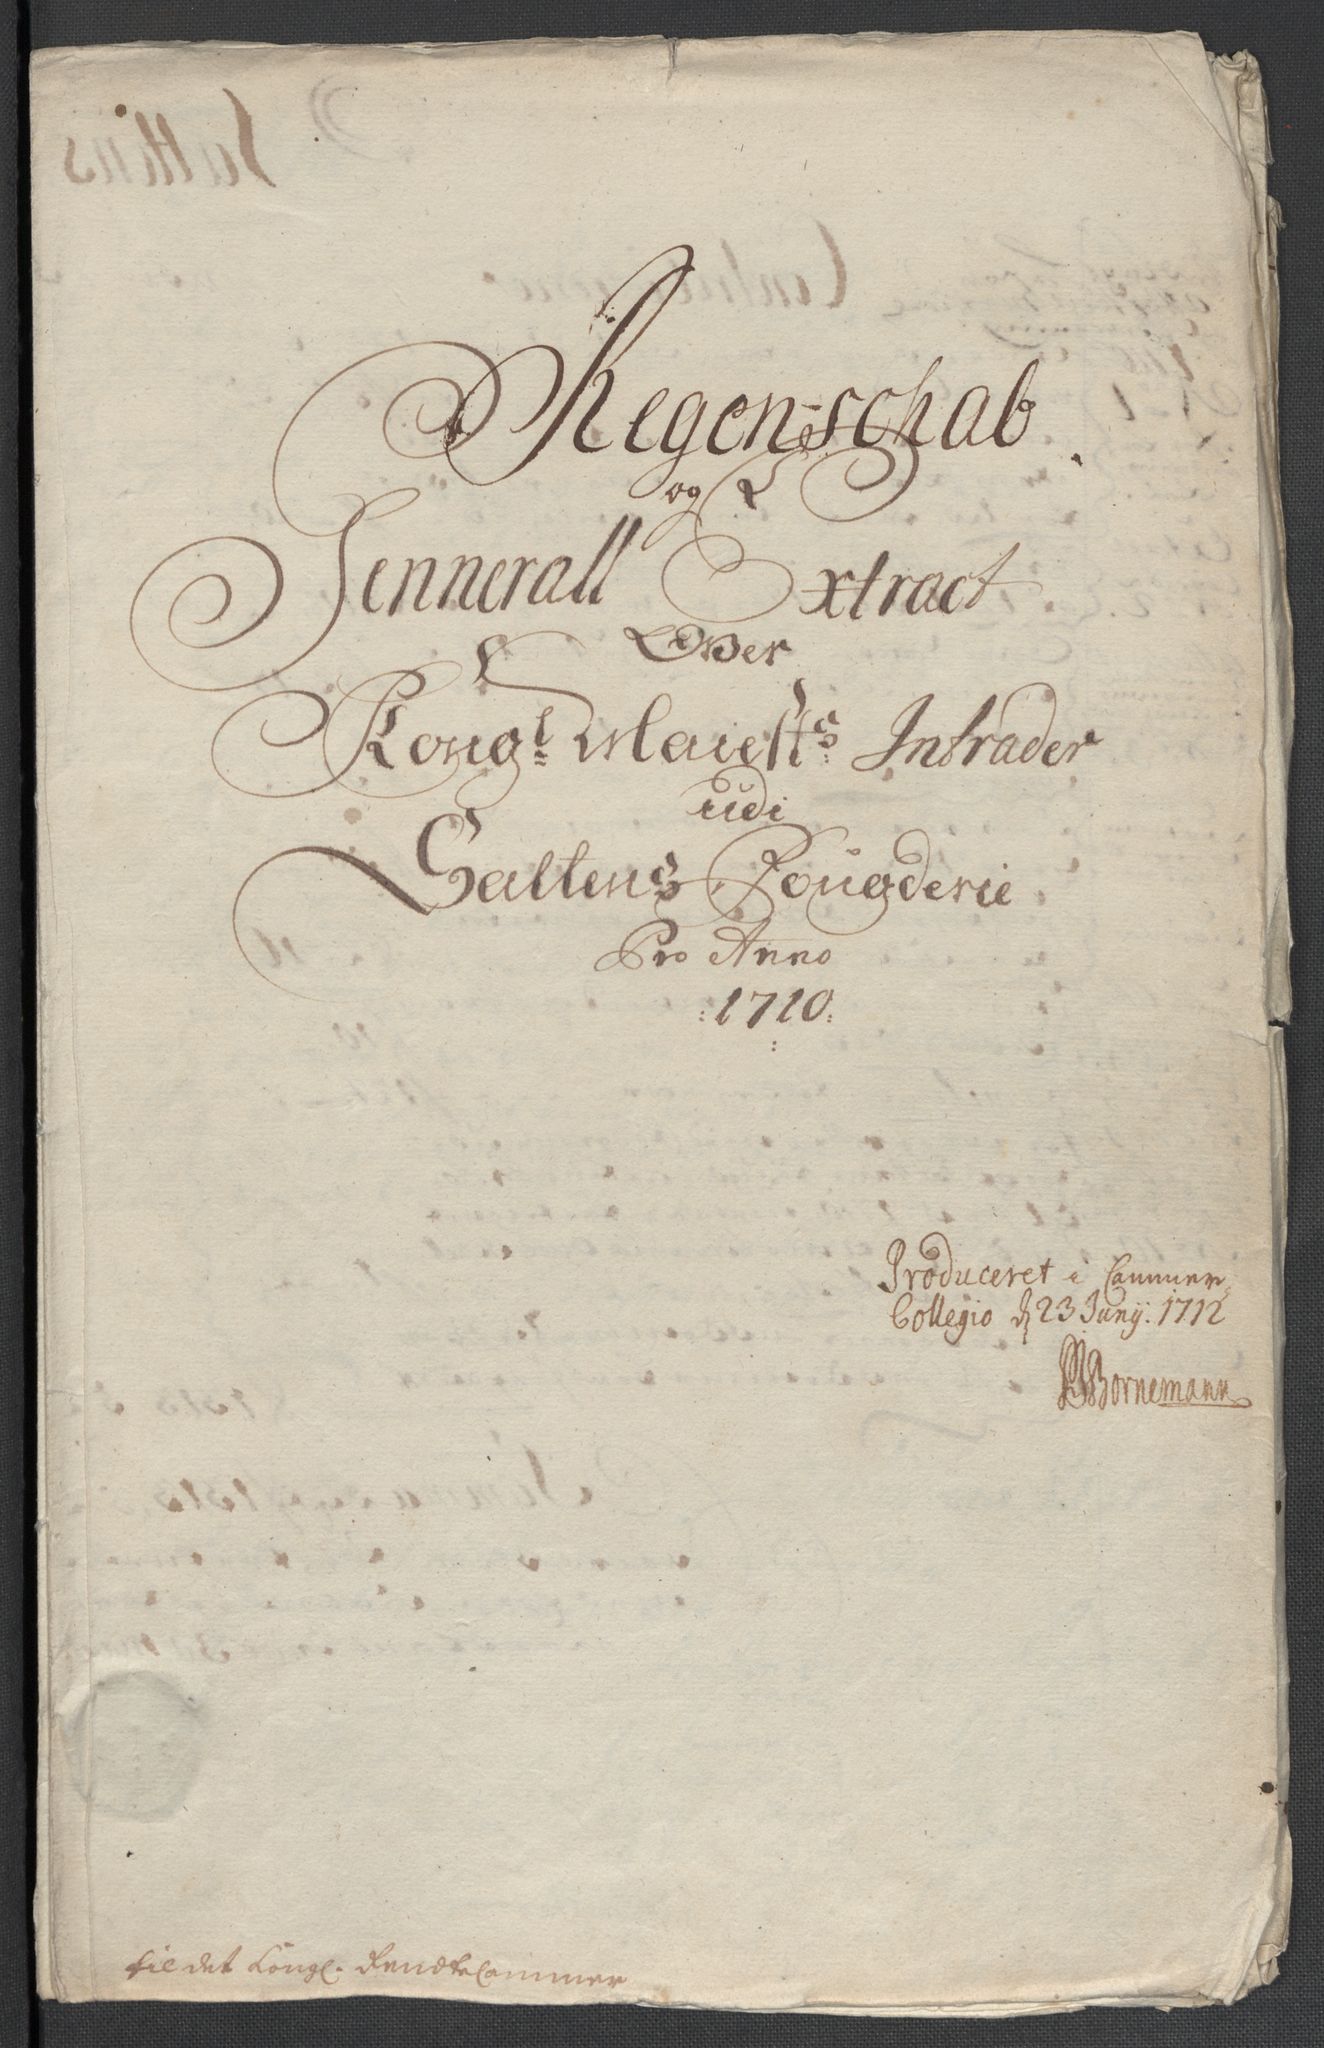 Regenschab
og
Jennerall Extract
Over
Kongl Maiests Intrader
udi
Saltens Fougderie
Pro Anno
:1710:
Produceret i Cammer
Collegio d 23 Junij: 1712
Bornemann
til det Kongl. RendteCammer